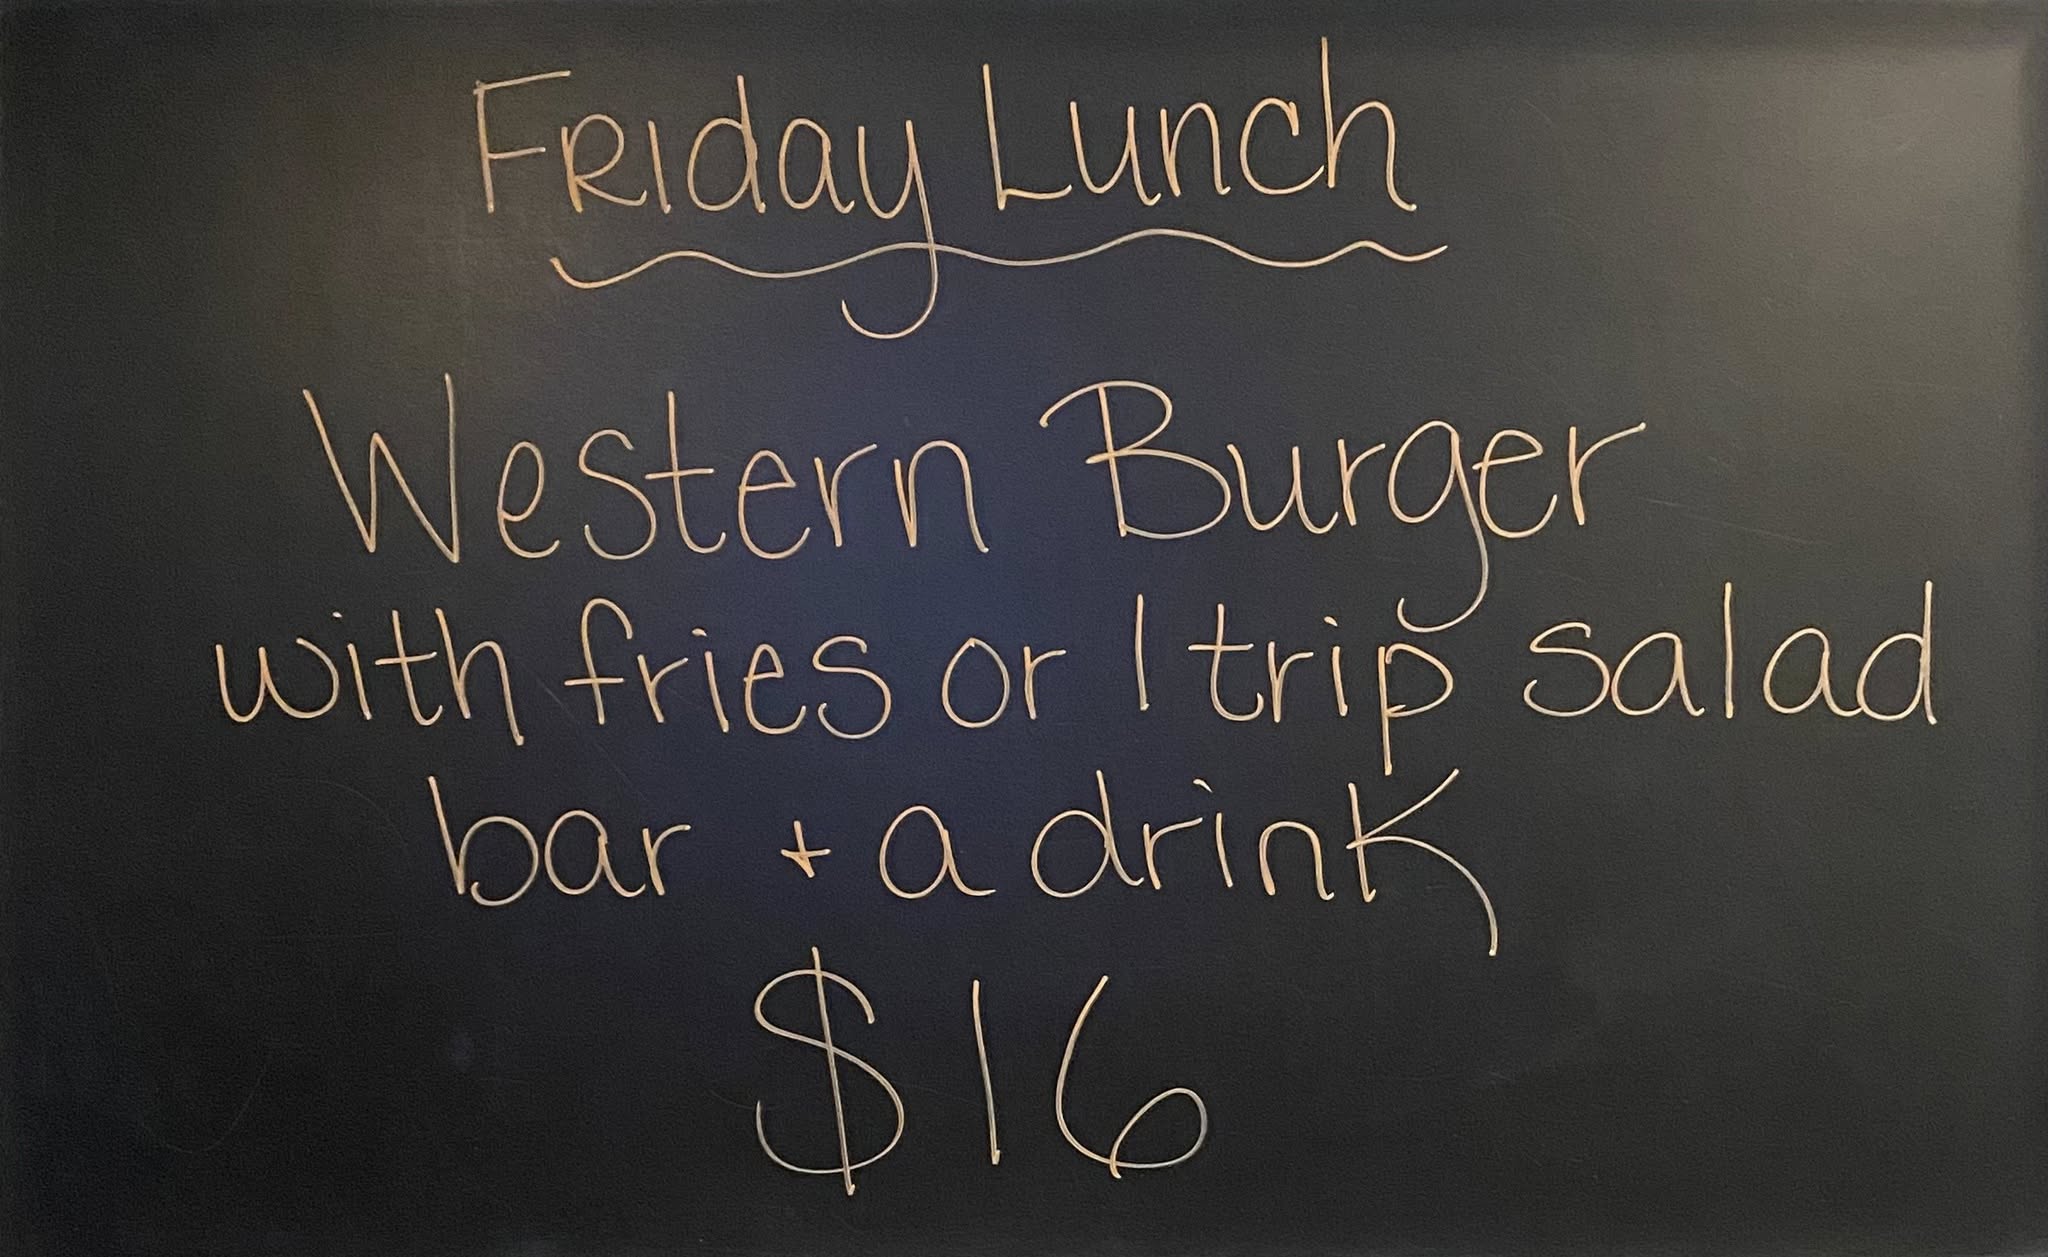 Friday Lunch
Western Burger
with fries or 1 trip salad
bar + a drink
$16